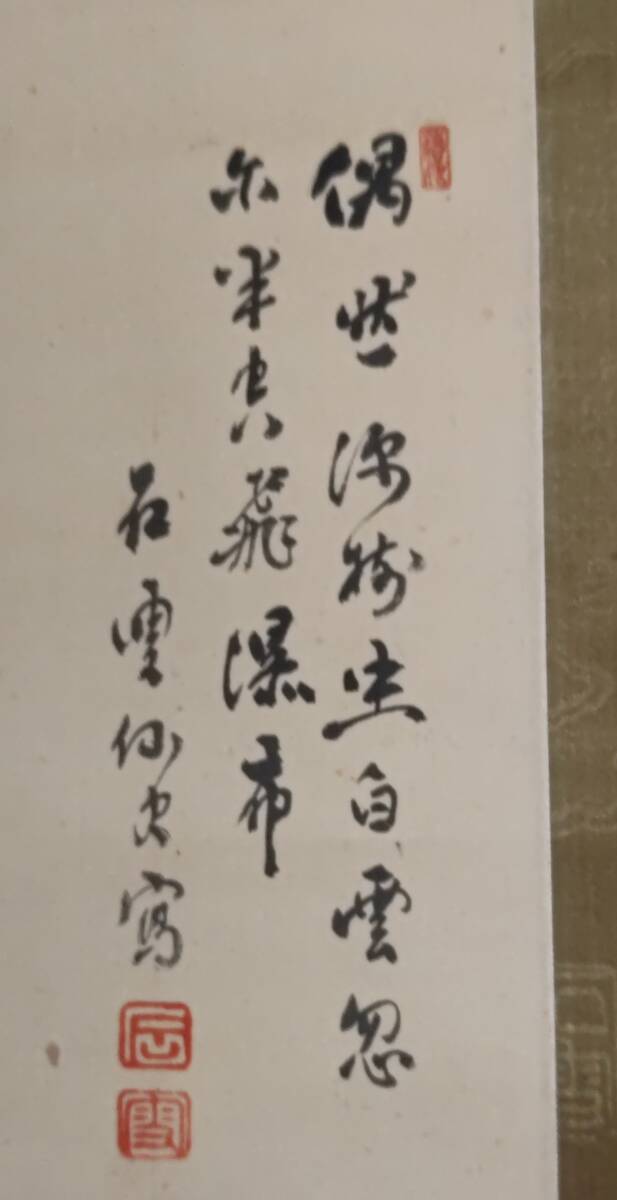 偶然深樹生白雲忽
尓半空飛瀑布
石雲仙史寫
石
雲